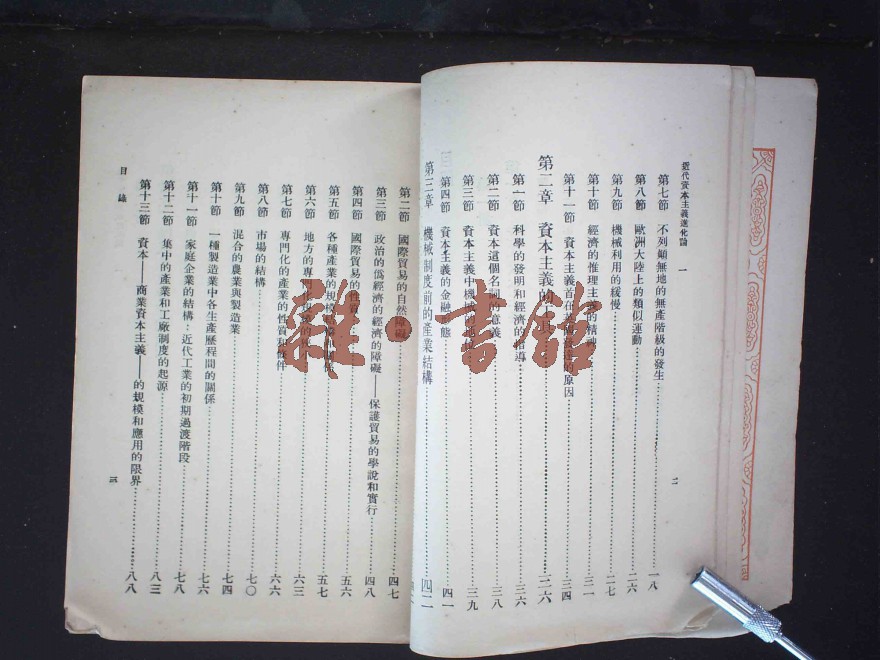 近代資本主義進化論 一 二
第七節 不列顛無地的無產階級的發生 一八
第八節 歐洲大陸上的類似運動 二六
第九節 機械利用的緩慢 二七
第十節 經濟的推理主義的精神 三一
第十一節 資本主義首在英國發達的原因 三四
第二章 資本主義的 三六
第一節 科學的發明和經濟的指導 三六
第二節 資本這個名詞的意義 三八
第三節 資本主義中機械的 三九
第四節 資本主義的金融 態 四一
第三章 機械制度前的產業結構 四二
第二節 國際貿易的自然障礙 四七
第三節 政治的僞經濟的經濟的障礙——保護貿易的學說和實行 四八
第四節 國際貿易的性質 五六
第五節 各種產業的規模 五七
第六節 地方的專門 六三
第七節 專門化的產業的性質和條件 六六
第八節 市場的結構 七〇
第九節 混合的農業與製造業 七四
第十節 一種製造業中各生產歷程間的關係 七六
第十一節 家庭企業的結構：近代工業的初期過渡階段 七八
第十二節 集中的產業和工廠制度的起源 八三
第十三節 資本——商業資本主義——的規模和應用的限界 八八
目錄 三
雜·書館